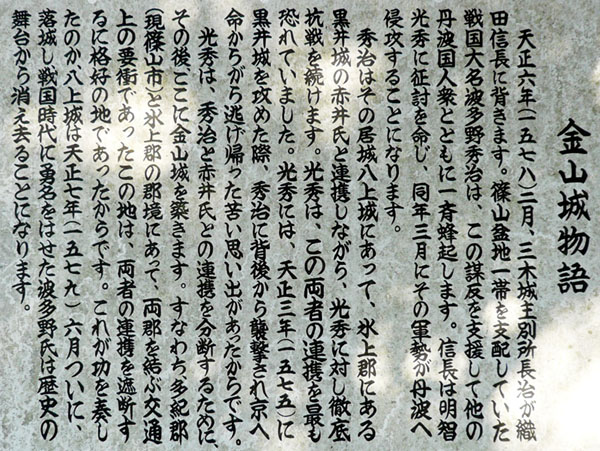 金山城物語
天正六年(一五七八)二月、三木城主別所長治が織
田信長に背きます。篠山盆地一帯を支配していた
戦国大名波多野秀治は、この謀反を支援して他の
丹波国人衆とともに一斉蜂起します。信長は明智
光秀に征討を命じ、同年三月にその軍勢が丹波へ
侵攻することになります。
秀治はその居城八上城にあって、氷上郡にある
黒井城の赤井氏と連携しながら、光秀に対し徹底
抗戦を続けます。光秀は、この両者の連携を最も
恐れていました。光秀には、天正三年(一五七五)に
黒井城を攻めた際、秀治に背後から襲撃され京へ
命からがら逃げ帰った苦い思い出があったからです。
光秀は、秀治と赤井氏との連携を分断するために、
その後ここに金山城を築きます。すなわち多紀郡
(現篠山市)と氷上郡の郡境にあって、両郡を結ぶ交通
上の要衝であったこの地は、両者の連携を遮断す
るに格好の地であったからです。これが功を奏し
たのか八上城は天正七年(一五七九)六月ついに、
落城し戦国時代に勇名をはせた波多野氏は歴史の
舞台から消え去ることになります。